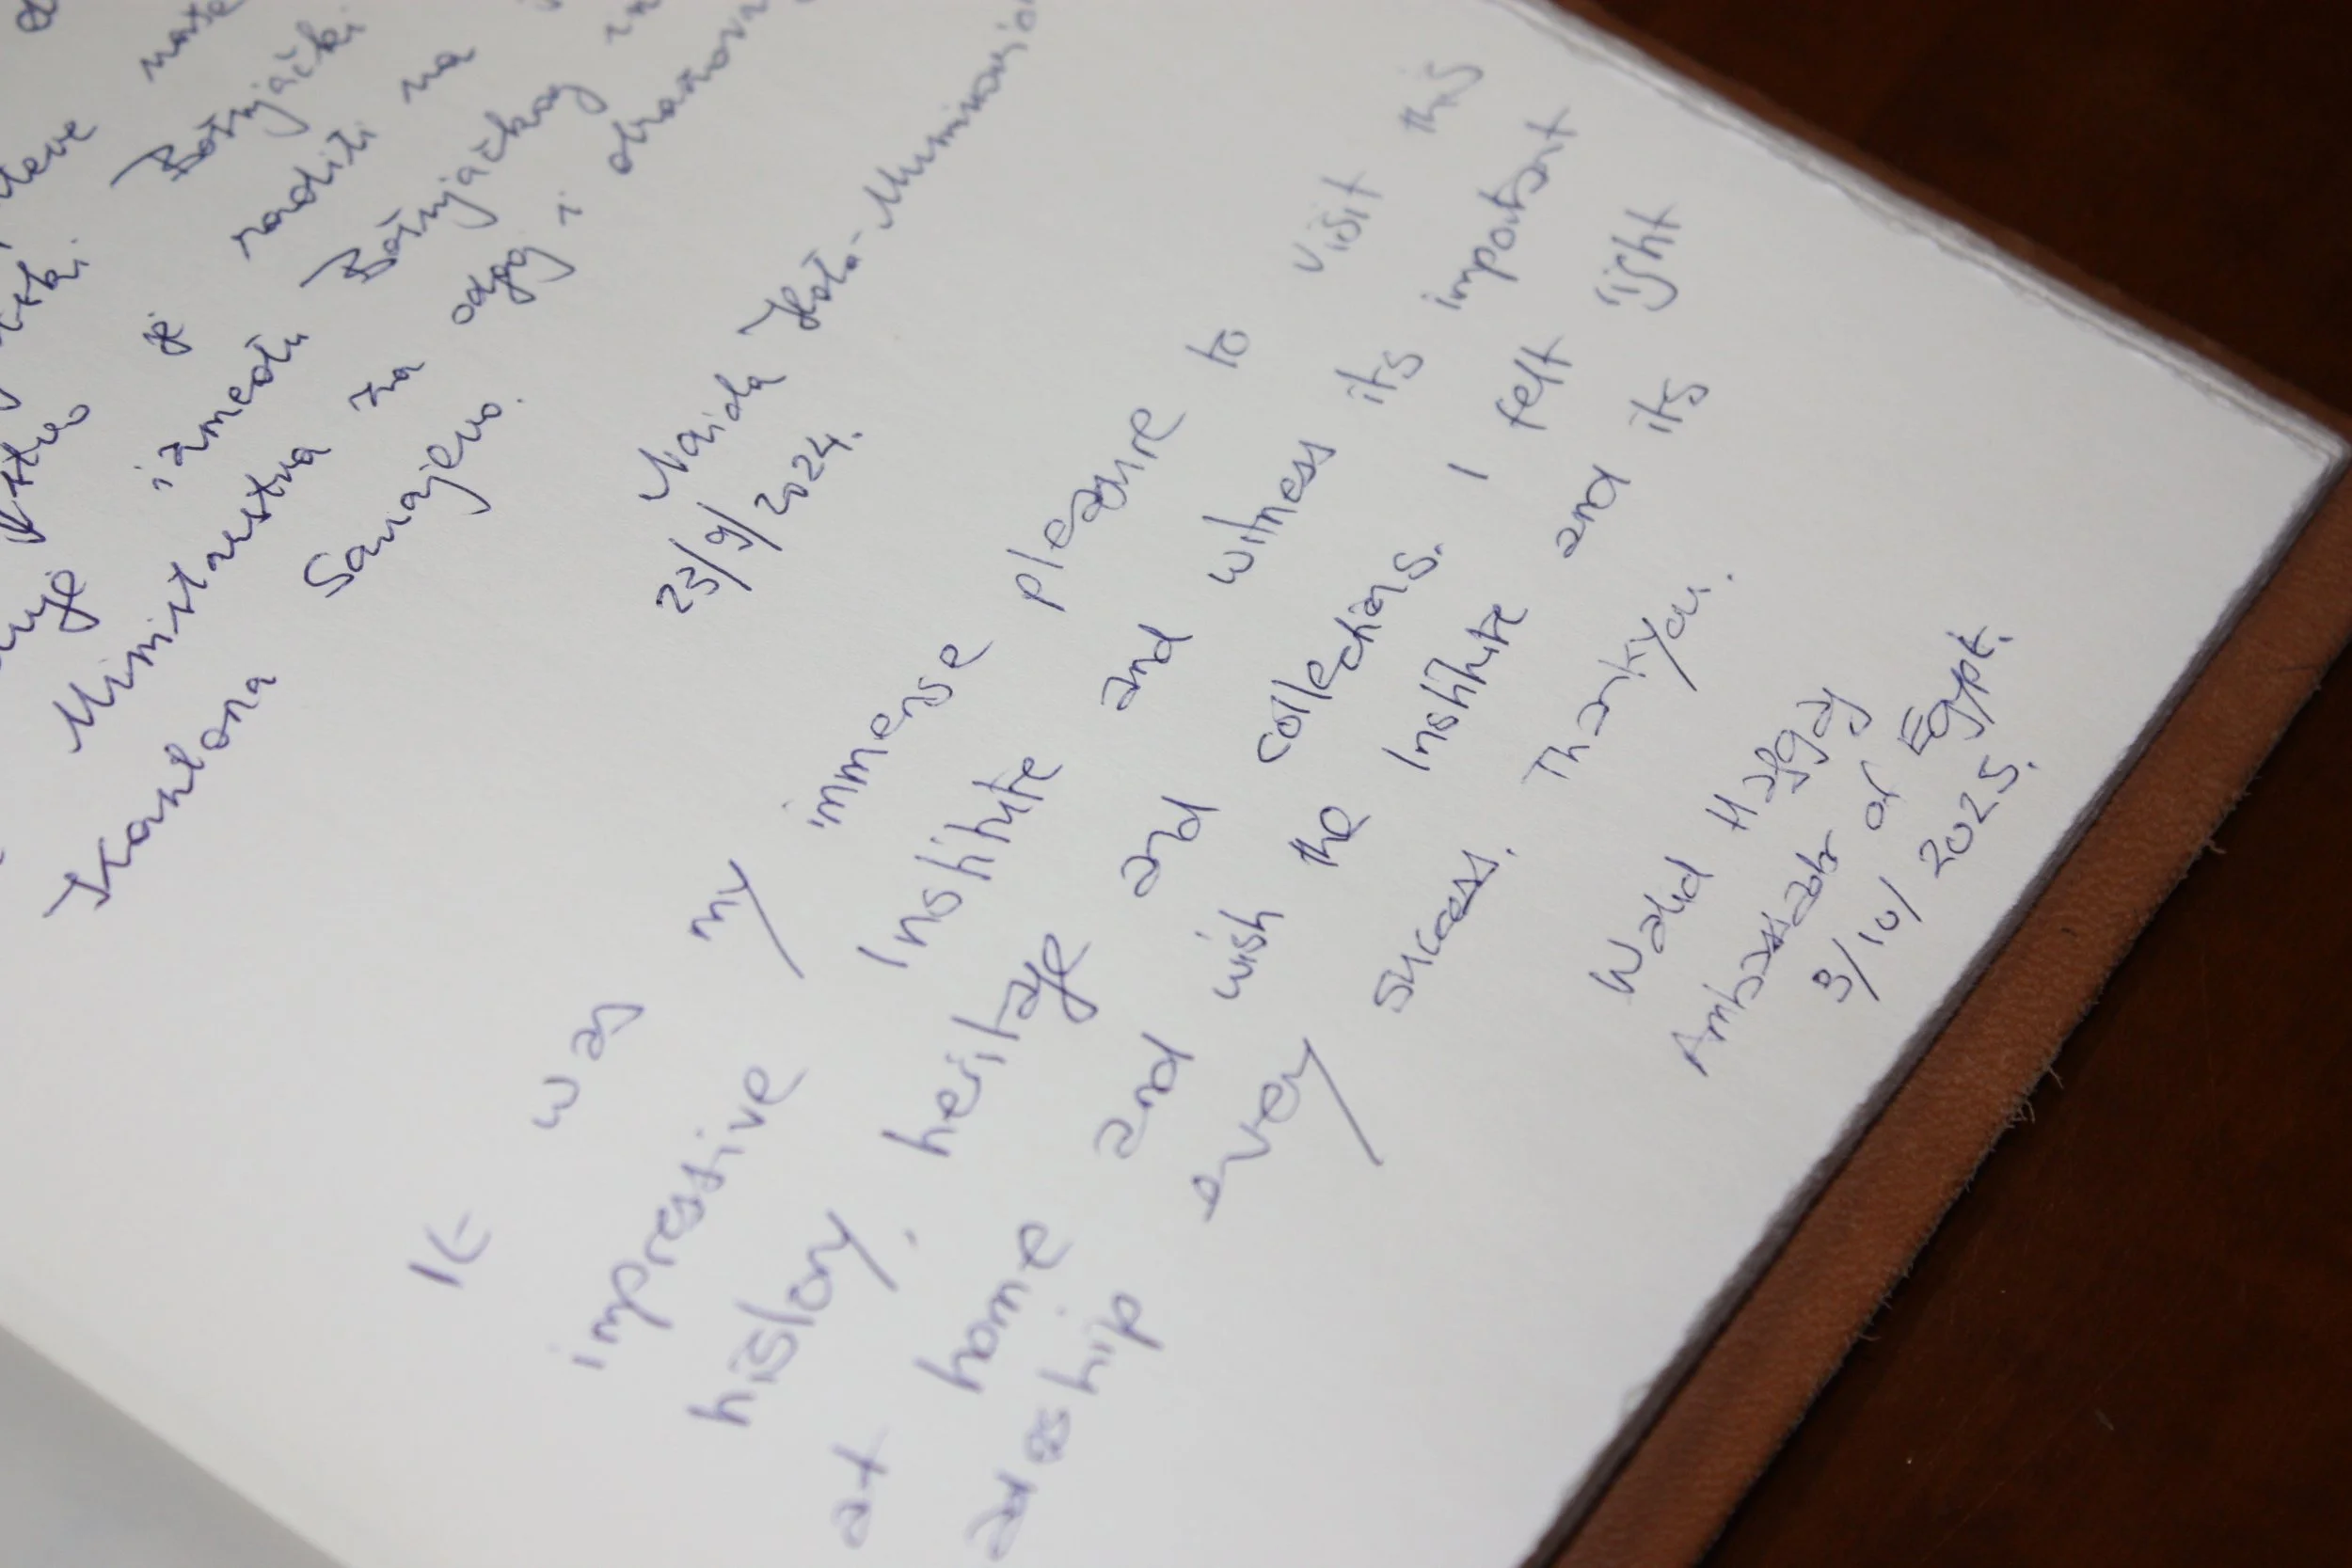 naše
Bošnjački
je raditi na
između Bošnjačkog
Ministarstva za odgoj i obrazovan
Kantona Sarajevo.
Naida Hota-Muminović
23/9/2024.
It was my immense pleasure to visit this
impressive Institute and witness its important
history, heritage and collections. I felt right
at home and wish the Institute and its
adership every success. Thank you.
Walid Haggag
Ambassador of Egypt.
9/10/2025.